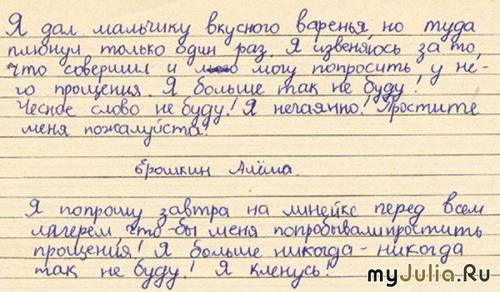 Я дал мальчику вкусного варенья, но туда
плюнул только один раз. Я извеняюсь за то,
что совершил и могу попросить у не-
го прощения. Я больше так не буду!
Чесное слово не буду! Я нечаянно! Простите
меня пожалуйста!
Ерошкин Алёша.
Я попрошу завтра на линейке перед всем
лагерем, что-бы меня попробывали простить
прощения! Я больше никогда-никогда
так не буду! Я кленусь!
myJulia.Ru